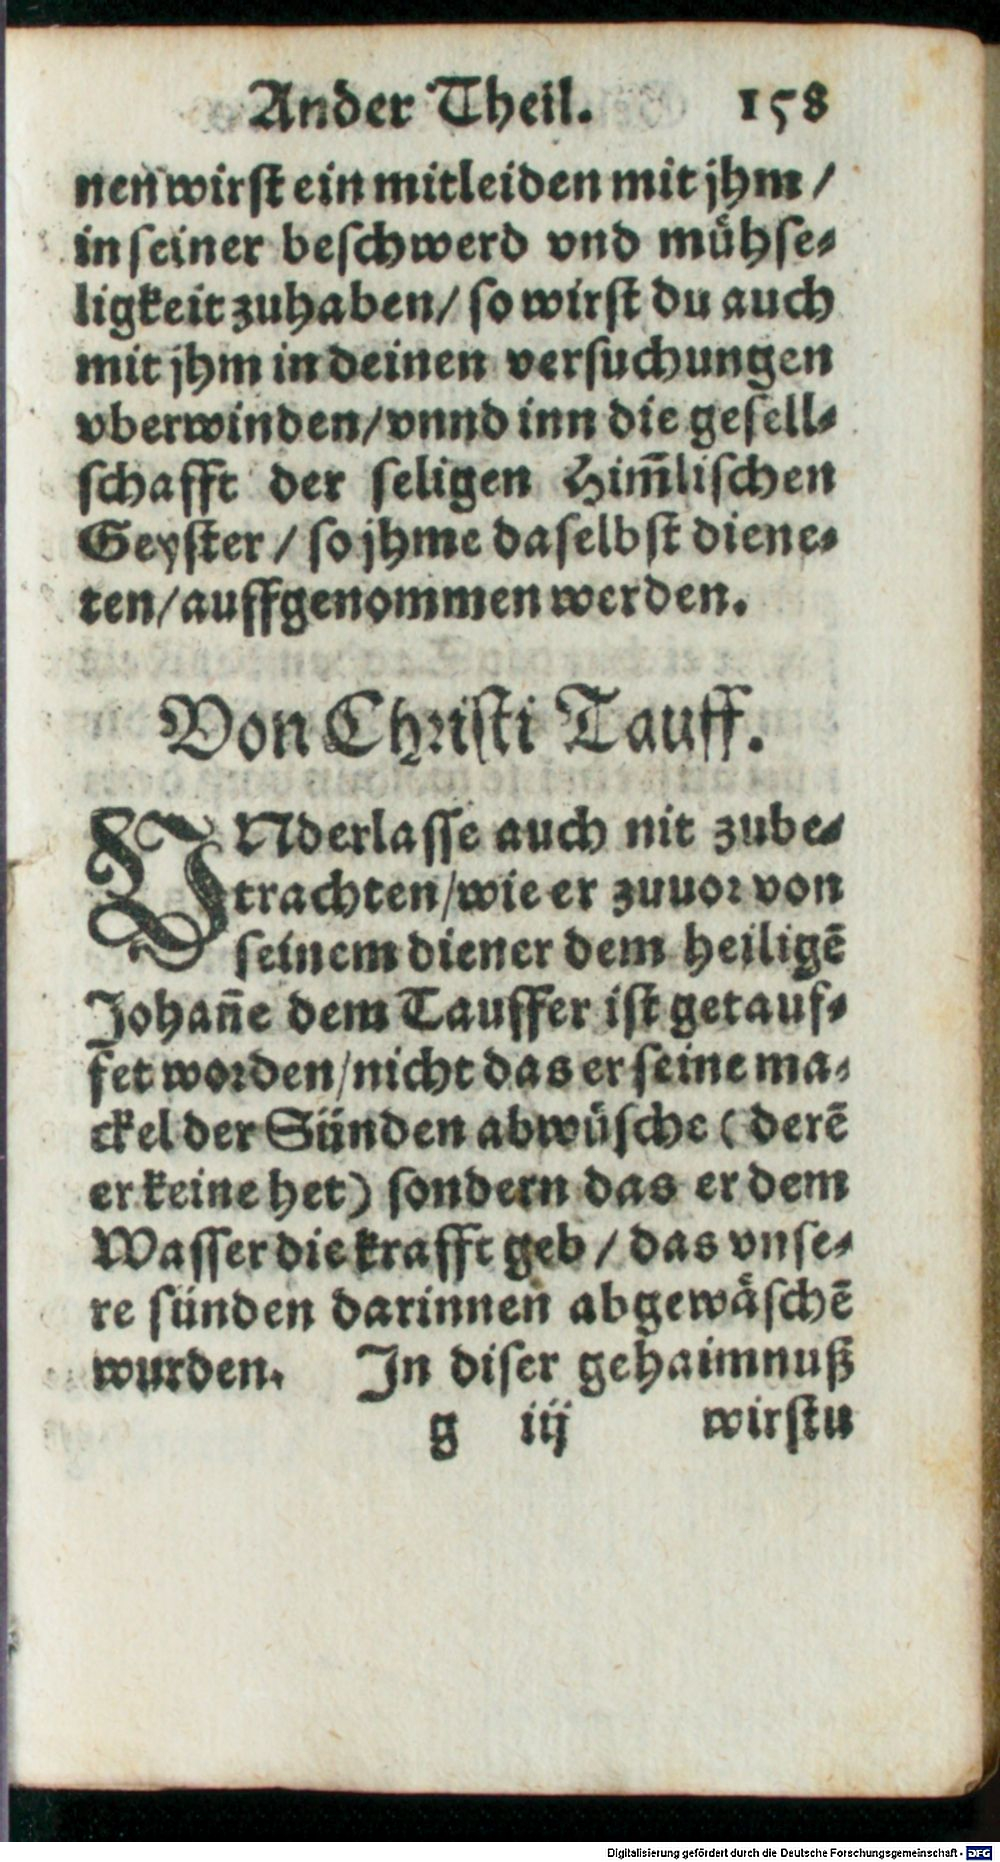 Ander Theil. 158
nen wirst ein mitleiden mit jhm /
in seiner beschwerd vnd mühse-
ligkeit zuhaben / so wirst du auch
mit jhm in deinen versuchungen
vberwinden / vnnd inn die gesell-
schafft der seligen Him̃lischen
Geyster / so jhme daselbst diene-
ten / auffgenommen werden.
Von Christi Tauff.
VNderlasse auch nit zube-
trachten / wie er zuuor von
seinem diener dem heiligẽ
Johañe dem Tauffer ist getauf-
fet worden / nicht das er seine ma-
ckel der Sünden abwüsche ( derẽ
er keine het) sondern das er dem
Wasser die krafft geb / das vnse-
re sünden darinnen abgewäschẽ
wurden. In diser gehaimnuß
g iij wirstu
Digitalisierung gefördert durch die Deutsche Forschungsgemeinschaft - DFG